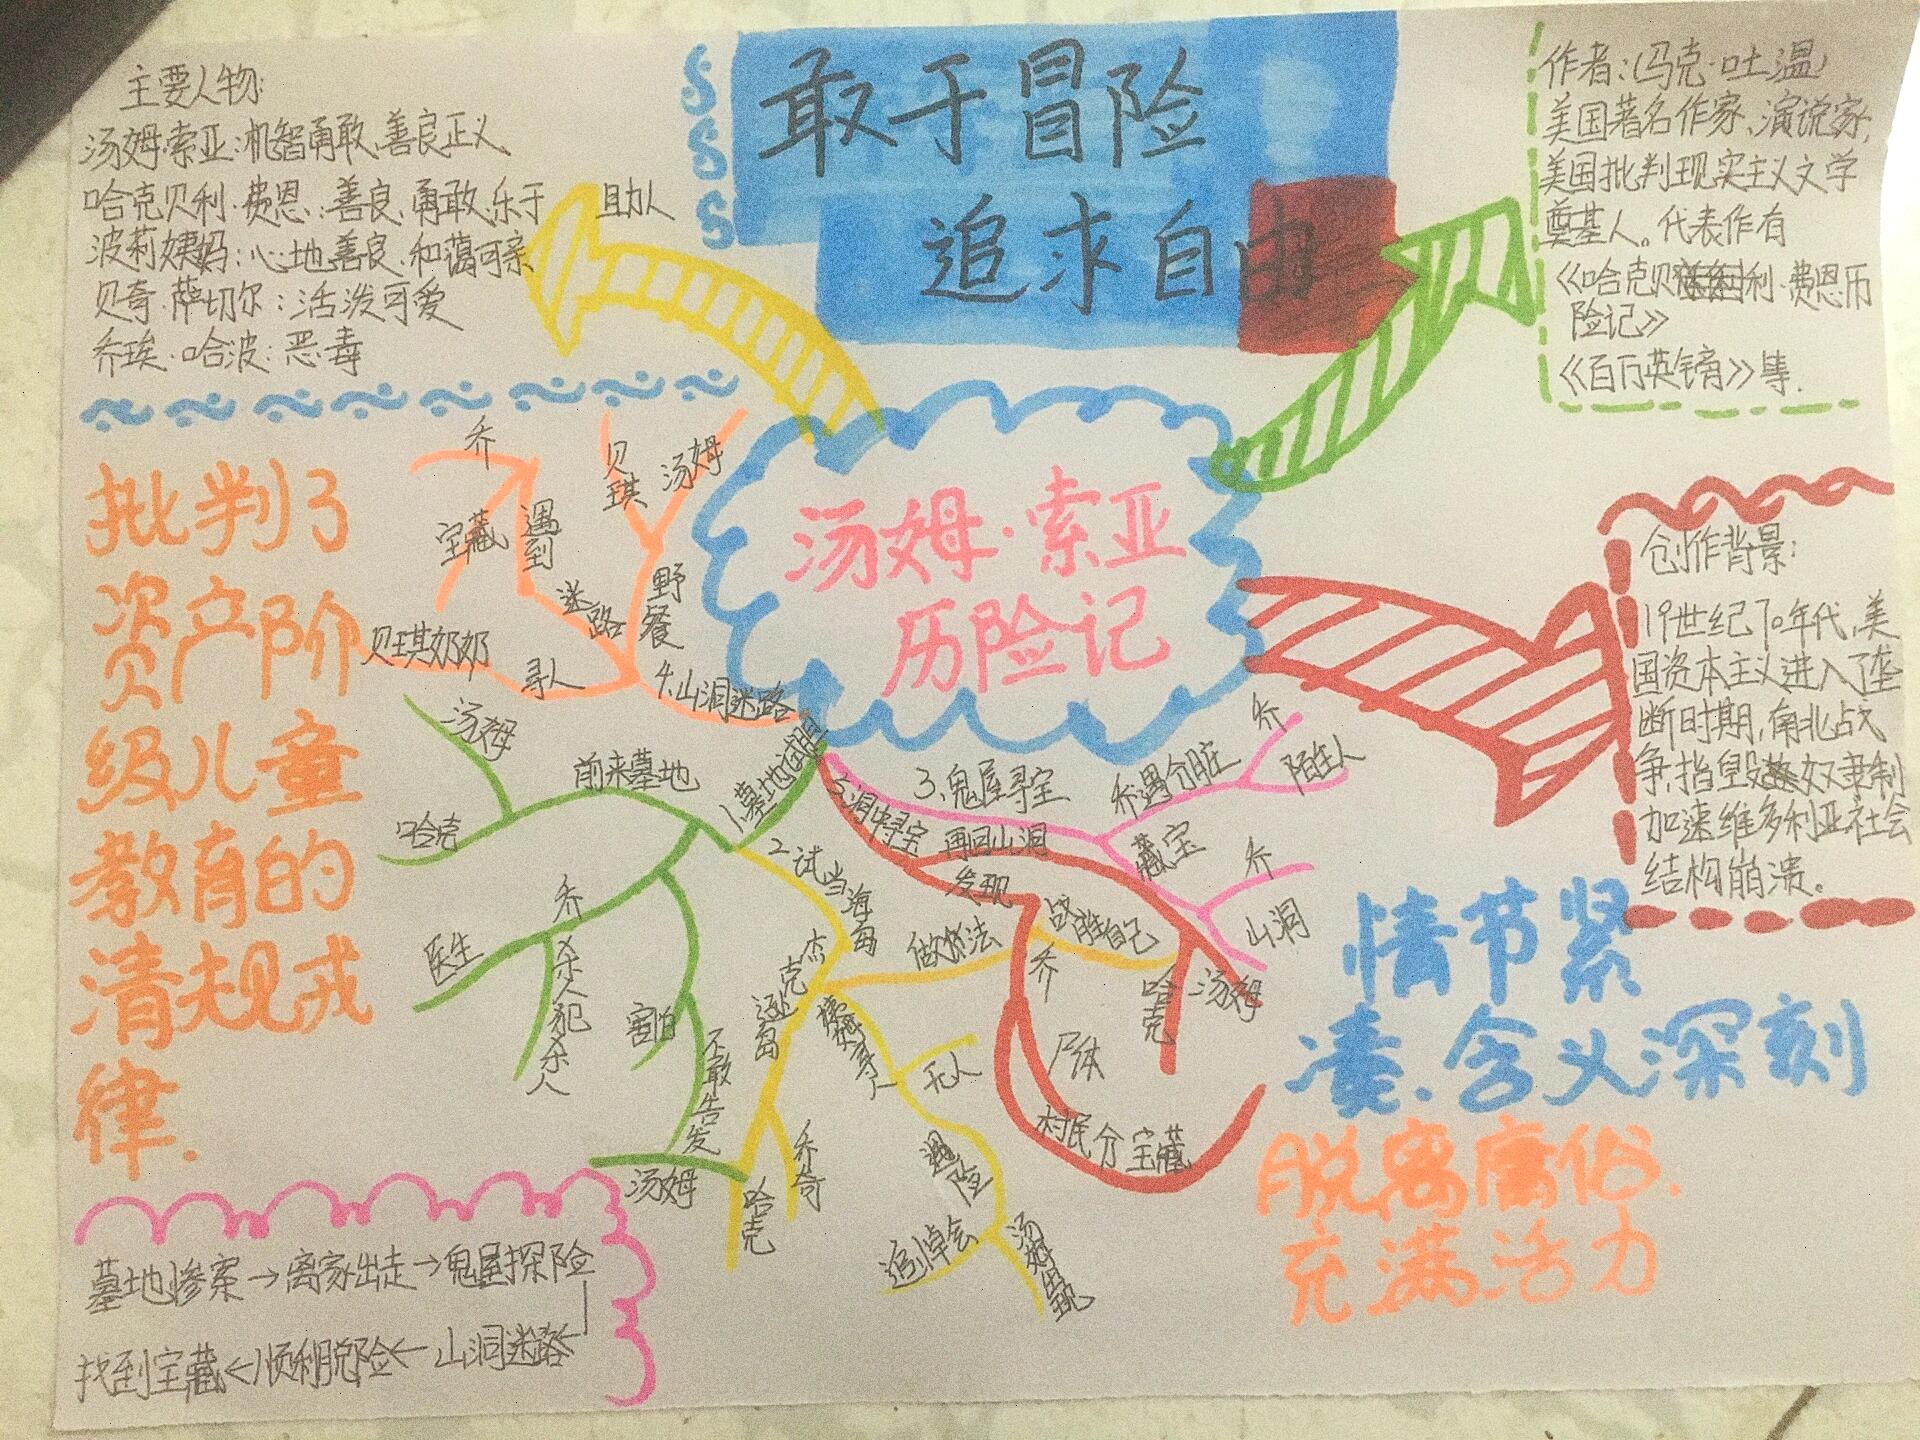 敢于冒险
追求自由
主要人物:
汤姆·索亚:机智勇敢、善良正义
哈克贝利·费恩:善良、勇敢、乐于助人
波莉姨妈:心地善良、和蔼可亲
贝奇·萨切尔:活泼可爱
乔埃·哈波:恶毒
作者:(马克·吐温)
美国著名作家、演说家,
美国批判现实主义文学
奠基人。代表作有
《哈克贝利·费恩历
险记》
《百万英镑》等.
汤姆·索亚
历险记
创作背景:
19世纪70年代,美
国资本主义进入了垄
断时期,南北战
争,指毁奴隶制
加速维多利亚社会
结构崩溃。
批判了
资产阶
级儿童
教育的
清规戒
律.
乔
宝藏
遇到
迷路
贝琪
汤姆
野餐
贝琪奶奶
寻人
4.山洞迷路
1.墓地试胆
前来墓地
汤姆
哈克
乔
医生
杀人犯杀人
害怕
不敢告发
汤姆
2.试当海岛
杰克逊岛
哈克
乔奇
做做法
战胜自己
无人
遇险
追悼会
汤姆出现
3.鬼屋寻宝
乔遇分脏
乔
陌生人
藏宝
乔
山洞
5.洞中寻宝
再回山洞
发现
乔
尸体
哈克
汤姆
村民分宝藏
情节紧
凑、含义深刻
脱离庸俗.
充满活力
墓地惨案→离家出走→鬼屋探险
找到宝藏←顺利脱险←山洞迷路